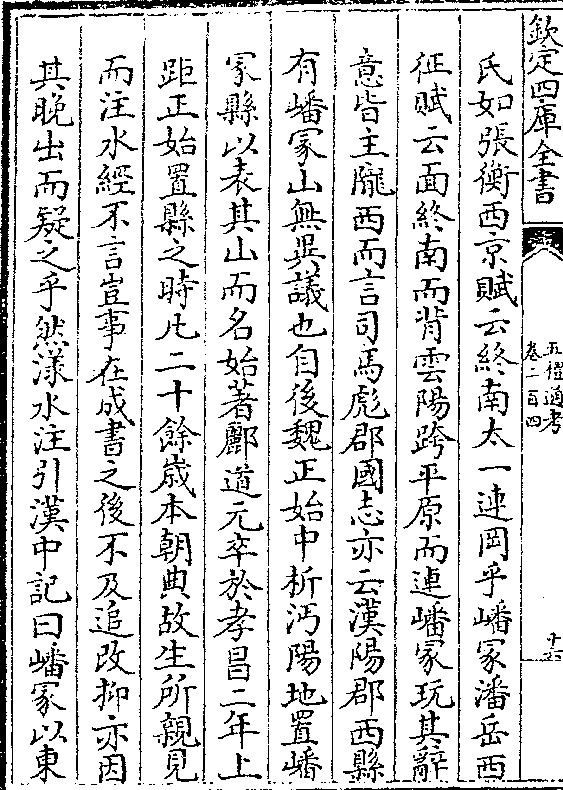 欽定四庫全書
五禮通考
卷二百四
十六
氏如張衡西京賦云終南太一連岡乎嶓冢潘岳西
征賦云面終南而背雲陽跨平原而連嶓冢玩其辭
意皆主隴西而言司馬彪郡國志亦云漢陽郡西縣
有嶓冢山無異議也自後魏正始中析沔陽地置嶓
冢縣以表其山而名始著酈道元卒於孝昌二年上
距正始置縣之時凡二十餘歲本朝典故生所親見
而注水經不言豈事在成書之後不及追改抑亦因
其晚出而疑之乎然漾水注引漢中記曰嶓冢以東